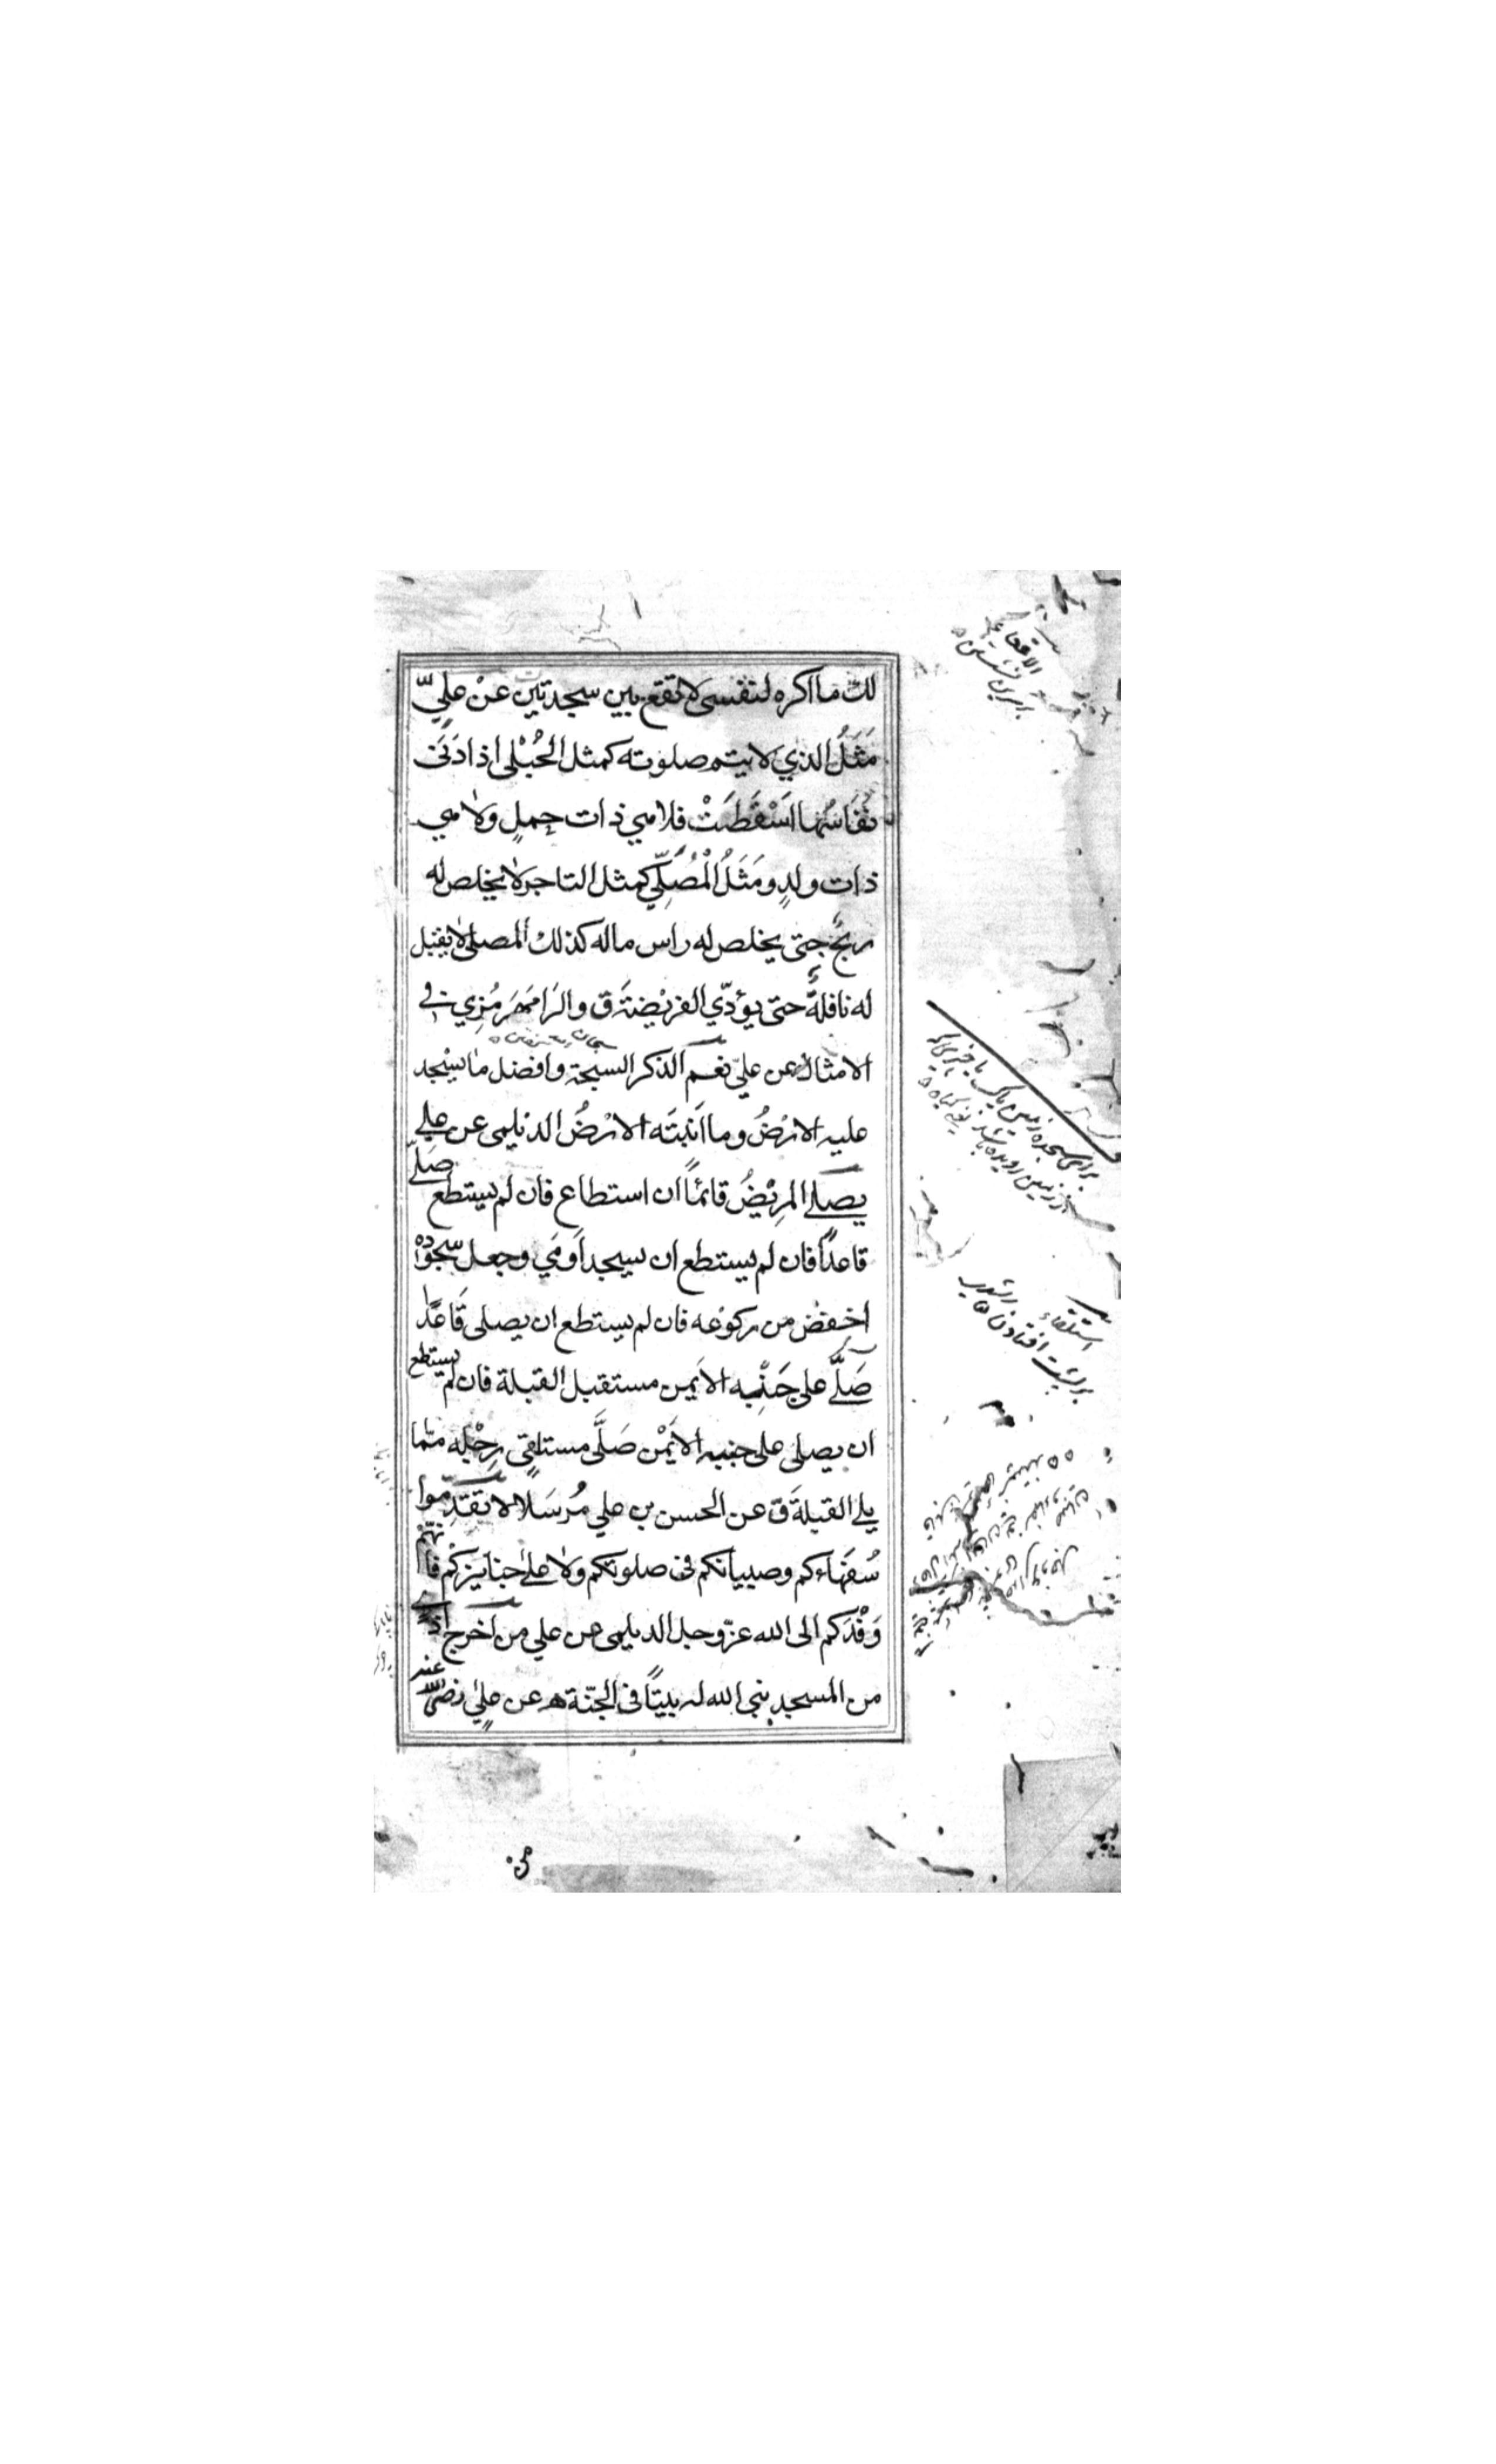 لك ما اكره لنفسى لا تقع بين سجدتين عن عليّ
مَثَلُ الذي لا يتم صلوته كمثل الحُبْلى اذا دَنَت
نفاسُها اسْقَطَتْ فلا هي ذات حملٍ ولا هي
ذات ولدٍ ومَثَلُ الْمُصَلِّي كمثل التاجر لا يخلص له
ربحٌ حتى يخلص له راس ماله كذلك المصلى لا يقبل
له نافلةٌ حتى يؤدّي الفريْضةَ ق والرَامَهَرمُزِي في
الامثال عن عليّ نعم الذكر السبحة وافضل ما يسْجد
عليه الارْضُ وما اَنبتَه الارْضُ الديلمى عن علي
يصلي المرِيْضُ قائمًا ان استطاع فان لم يستطع صَلّے
قاعدًا فان لم يستطع ان يسجد اَومَي وجعل سجودَه
اخفض من ركوعه فان لم يستطع ان يصلى قَاعدًا
صَلَّے على جَنْبِه الايمن مستقبل القبلة فان لم يستطع
ان يصلى على جنبه الايْمن صَلَّى مستلقى رِجْله مما
يلي القبلةَ ق عن الحسن بن علي مُرسَلًا لا تقدِّموا
سُفَهاءكم وصبيانكم فى صلوتكم ولا على جنائزكم فانّهم
وَفْدكم الى الله عزّ وجل الديلمى عن علي من اخرج اذًے
من المسجد بنى الله له بيتًا فى الجنّة ه عن علي رضى الله عنه
الاقعاء
براى سجده زمين پاك يا چيزى كه
از زمين روييده باشد
استلقاء
بر پشت افتادن